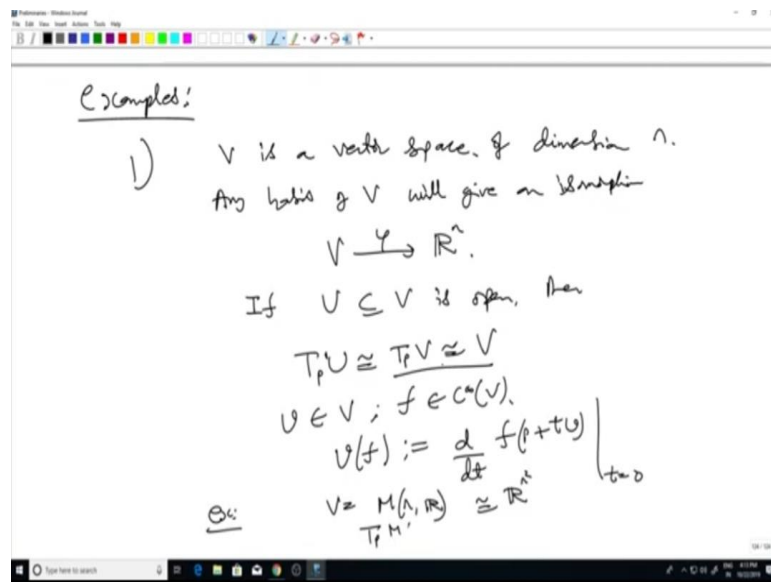 Preliminaries - Windows Journal
File Edit View Insert Actions Tools Help
Examples:
1) V is a vector space of dimension n.
Any basis of V will give an isomorphism
V →^φ ℝ^n.
If U ⊆ V is open, then
T_pU ≅ T_pV ≃ V
v ∈ V ; f ∈ C^∞(V).
v(f) := d/dt f(p+tv)|_{t=0}
Ex: V = M(n, ℝ) ≃ ℝ^{n²}
T_pM
Type here to search